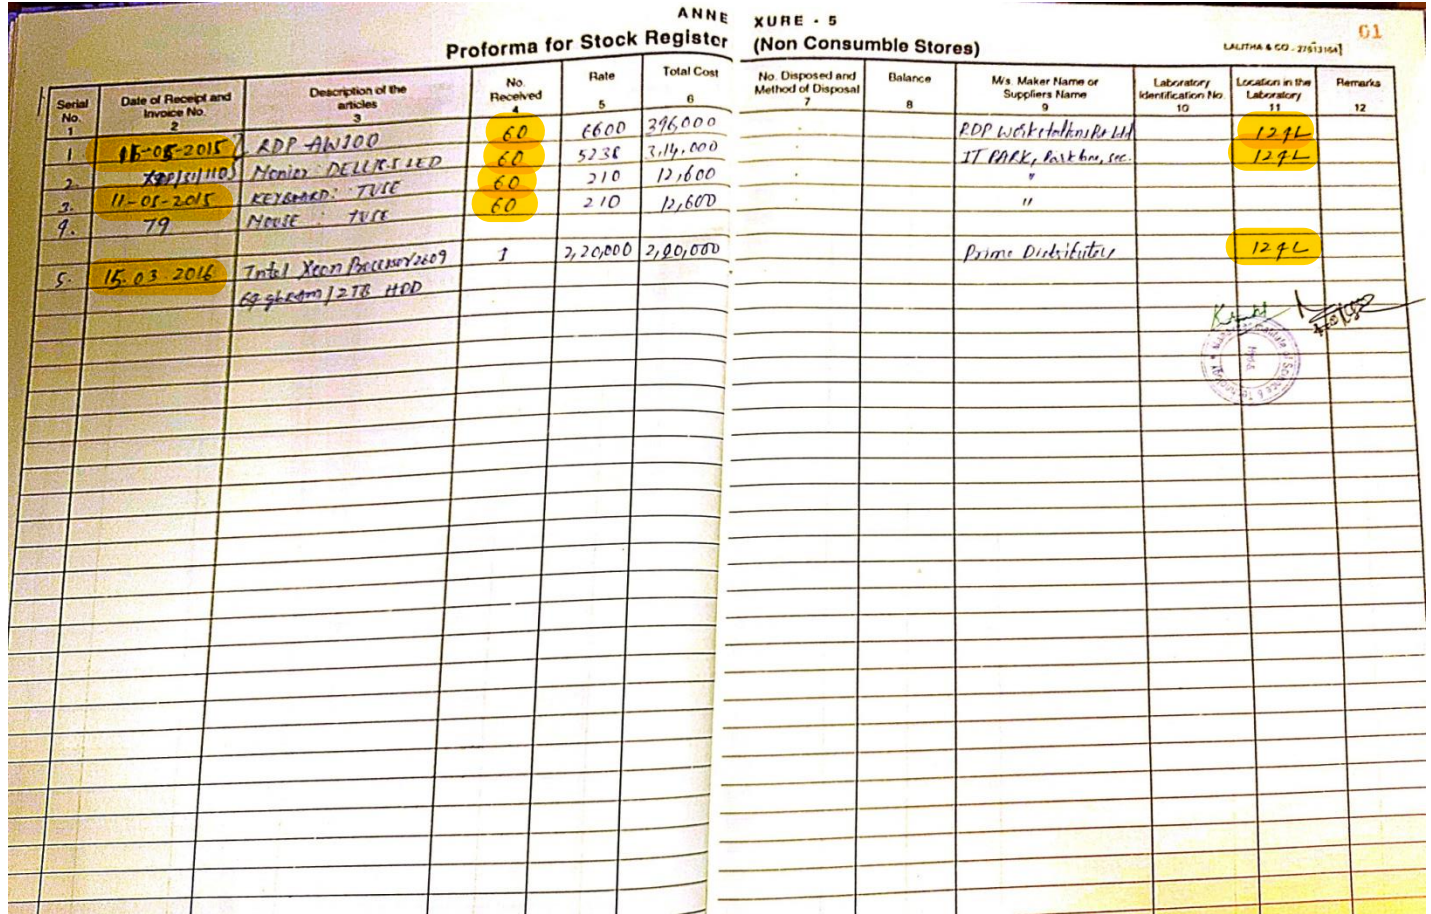 ANNEXURE - 5
61
Proforma for Stock Register (Non Consumble Stores)
LALITHA & CO - 27513164
Serial No. Date of Receipt and Invoice No. Description of the articles No. Received Rate Total Cost No. Disposed and Method of Disposal Balance M/s. Maker Name or Suppliers Name Laboratory Identification No. Location in the Laboratory Remarks
1 2 3 4 5 6 7 8 9 10 11 12
1 15-05-2015 RDP AW300 60 6600 396,000 RDP Workstations Pvt Ltd 124L
2. DELL LED 60 5238 3,14,000 IT PARK, 124L
3. 11-05-2015 KEYBOARD: TVSE 60 210 12,600 "
4. 79 MOUSE : TVSE 60 210 12,600 "
5. 15.03.2016 Intel Xeon Processor 2609 1 2,20,000 2,20,000 Prime Distributors 124L
64 gb RAM / 2TB HDD